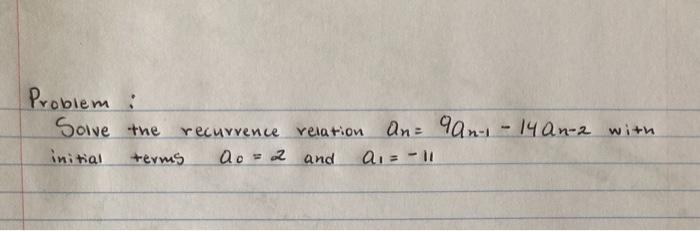 Problem :
Solve the recurrence relation an = 9an-1 - 14an-2 with
initial terms a0 = 2 and a1 = -11